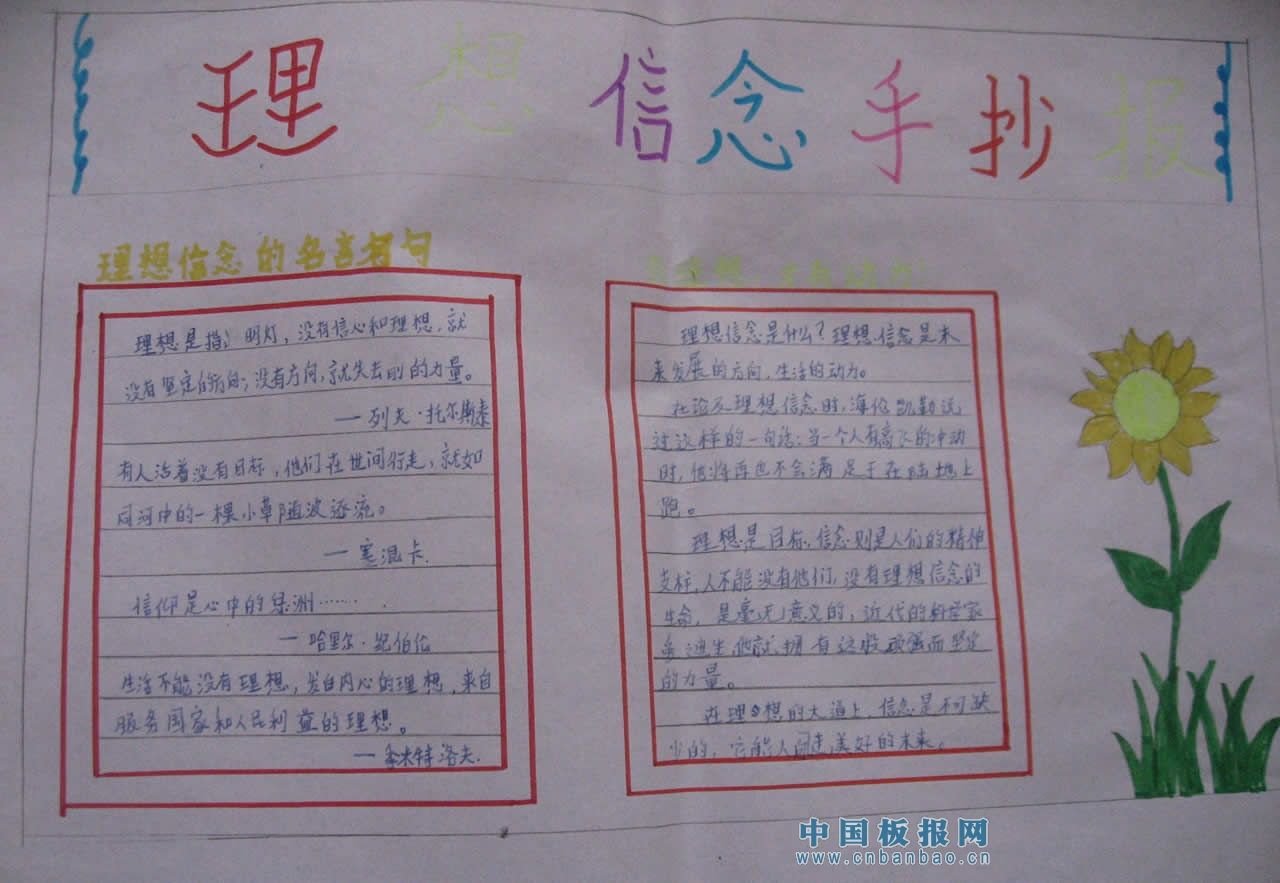 理想信念手抄报
理想信念的名言名句
理想是指 明灯，没有信心和理想，就
没有坚定的方向；没有方向，就失去前的力量。
—列夫·托尔斯泰
有人活着没有目标，他们在世间行走，就如
同河中的一棵小草随波逐流。
—塞涅卡
信仰是心中的绿洲……
—哈里尔·纪伯伦
生活不能没有理想，发自内心的理想，来自
服务国家和人民利益的理想。
—季米特洛夫.
理想信念是什么？理想信念是未
来发展的方向，生活的动力。
在论及理想信念时，海伦凯勒说
过这样的一句话：当一个人有高飞的冲动
时，他将再也不会满足于在陆地上
跑。
理想是目标，信念则是人们的精神
支柱，人不能没有他们，没有理想信念的
生命，是毫无意义的，近代的科学家
他就拥有这股顽强而坚定
的力量。
在理想的大道上，信念是不可缺
少的，它能人间走美好的未来。
中国板报网
www.cnbanbao.cn